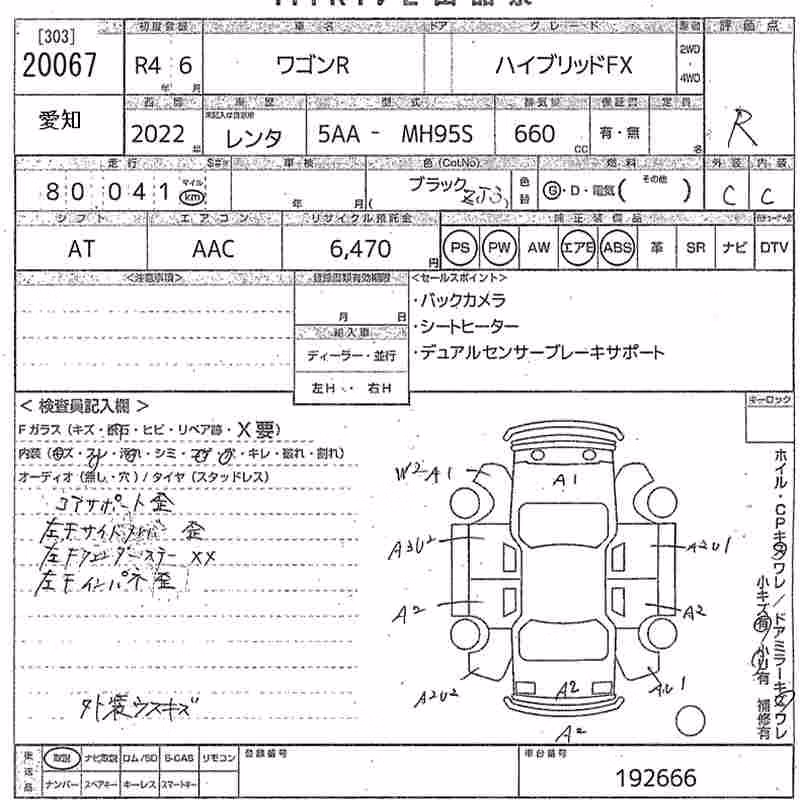 [303]
20067
初度登録
車名
ドア
グレード
評価点
R4 6
年 月
ワゴンR
ハイブリッドFX
2WD
・
4WD
R
愛知
車歴
型式
排気量
保証書
定員
2022 年
レンタ
5AA - MH95S
660 CC
有・無
名
走行
車検
色(ColNo)
燃料
外装
内装
80,041 マイル km
年 月
ブラック ( ZJ3 )
色替
G・D・電気( その他 )
C
C
シフト
エアコン
リサイクル預託金
純正装備品
AT
AAC
6,470 円
PS PW AW エアB ABS 革 SR ナビ DTV
<注意事項>
登録書類有効期限
<セールスポイント>
月 日
・バックカメラ
輸入車
・シートヒーター
ディーラー・並行
・デュアルセンサーブレーキサポート
左H ・ 右H
< 検査員記入欄 >
キーロック
Fガラス (キズ・飛石・ヒビ・リペア跡・X要)
内装 (キズ・スレ・汚れ・シミ・コゲ・穴・キレ・破れ・割れ)
オーディオ (無し・穴) / タイヤ (スタッドレス)
コアサポート歪
左Fサイドメンバ 歪
左Fフェンダーステー XX
左Fインパネ 歪
外装ウスキズ
W2A1
A1
A3U2
A2U1
A2
A2
A2U2
A2
AU1
A2
ホイル・CPキズワレ/ドアミラーキズワレ
小キズ有/小U有 補修有
後送品
取説 ナビ取説 ロム/SD S-CAS リモコン
ナンバー スペアキー キーレス スマートキー
登録番号
車台番号
192666